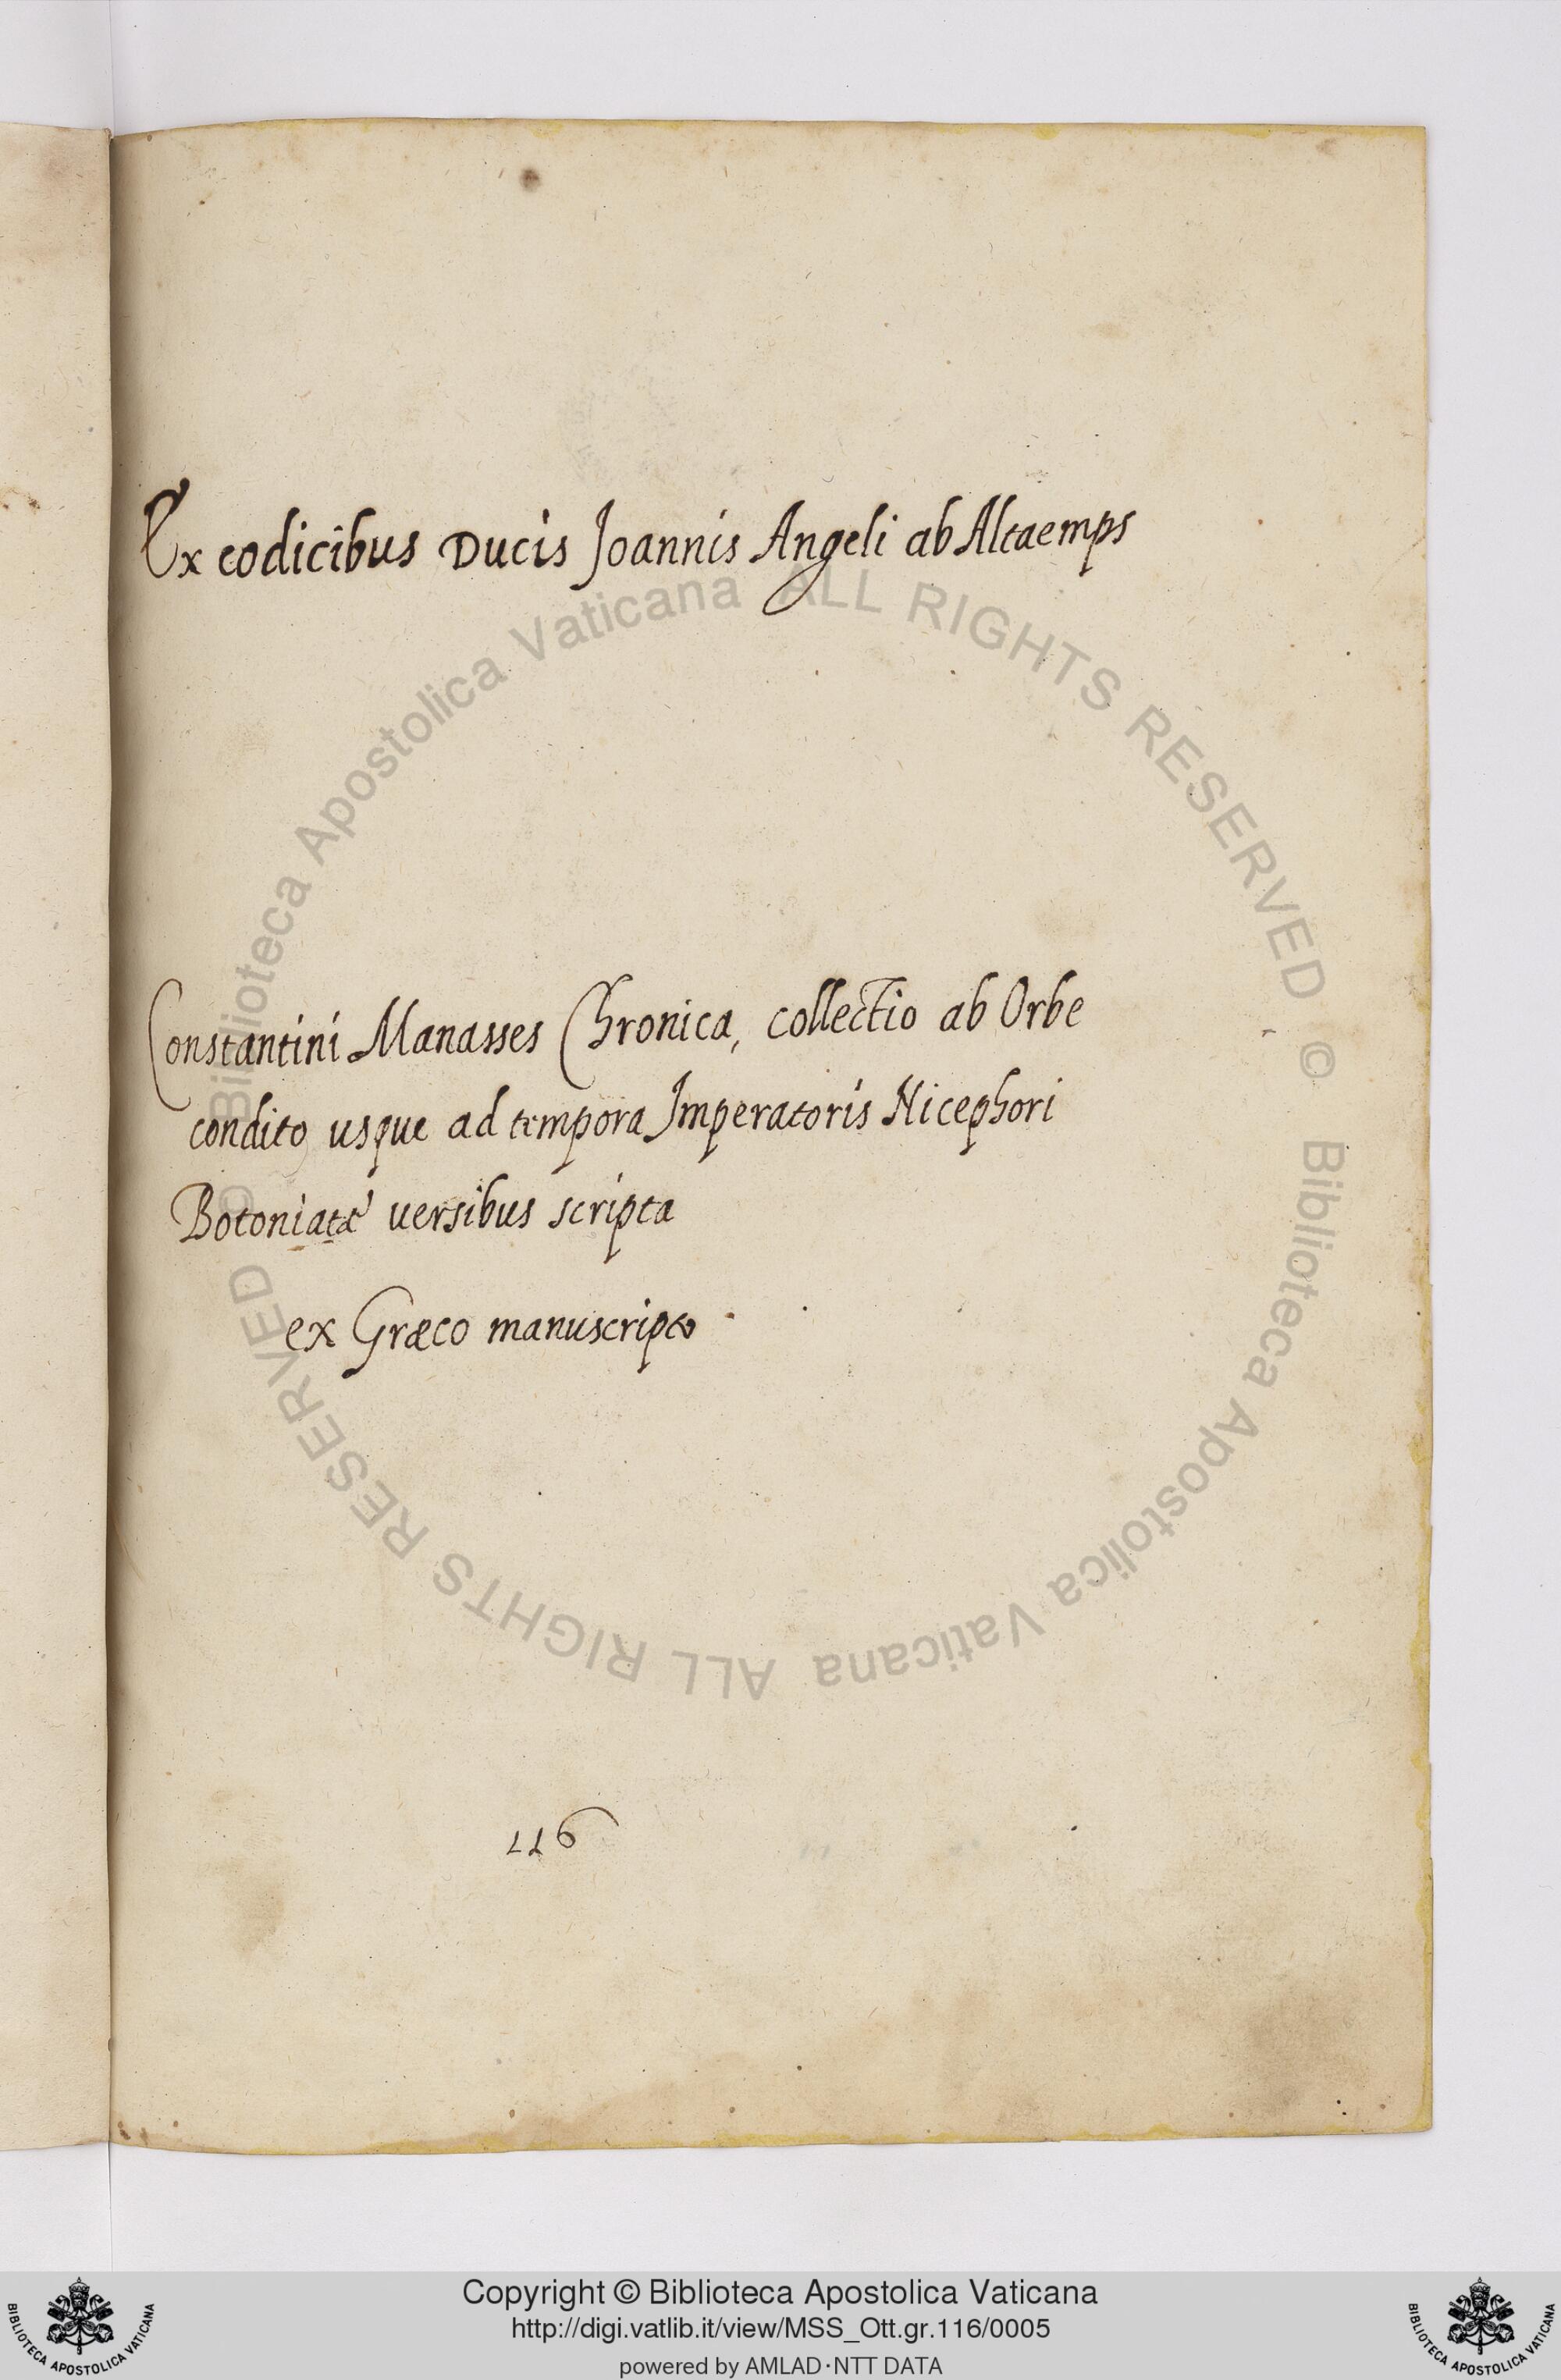 Ex codicibus Ducis Joannis Angeli ab Altaemps
Constantini Manasses Chronica, collectio ab Orbe
condito usque ad tempora Imperatoris Nicephori
Botoniatæ versibus scripta
ex Græco manuscripto
116
© Biblioteca Apostolica Vaticana ALL RIGHTS RESERVED
© Biblioteca Apostolica Vaticana ALL RIGHTS RESERVED
Copyright © Biblioteca Apostolica Vaticana
http://digi.vatlib.it/view/MSS_Ott.gr.116/0005
powered by AMLAD·NTT DATA
BIBLIOTECA APOSTOLICA VATICANA
BIBLIOTECA APOSTOLICA VATICANA